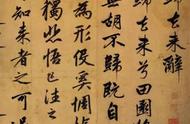 歸去來辭
歸去來兮田園
胡不歸既自
為形役奚惆
獨悲悟已往之
知來者之可